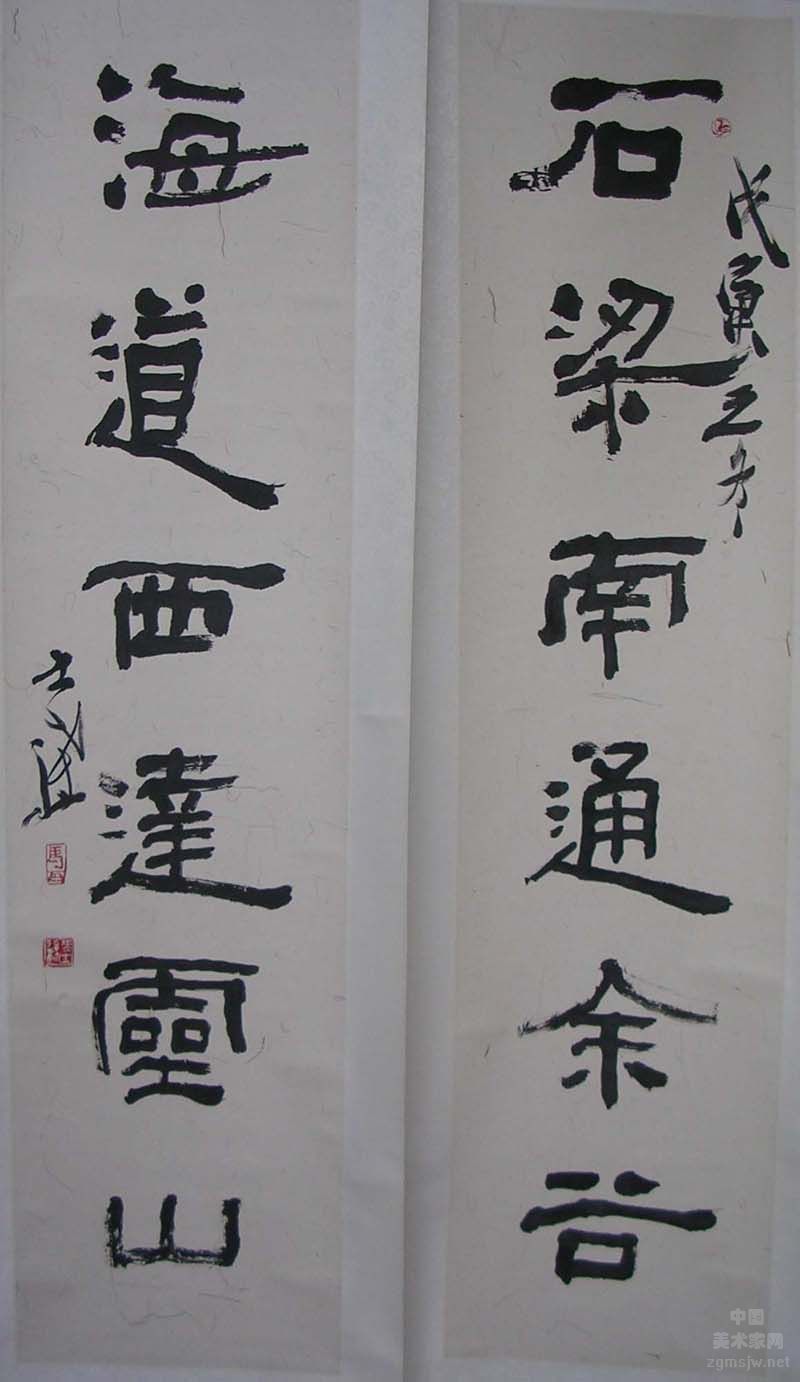 戊寅之冬
石梁南通余谷
海道西達靈山
中国
美术家网
zgmsjw.net